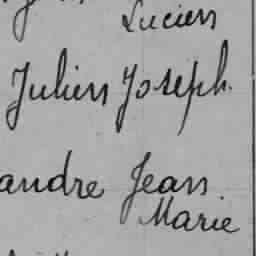 Lucien
Julien Joseph.
andre Jean
Marie